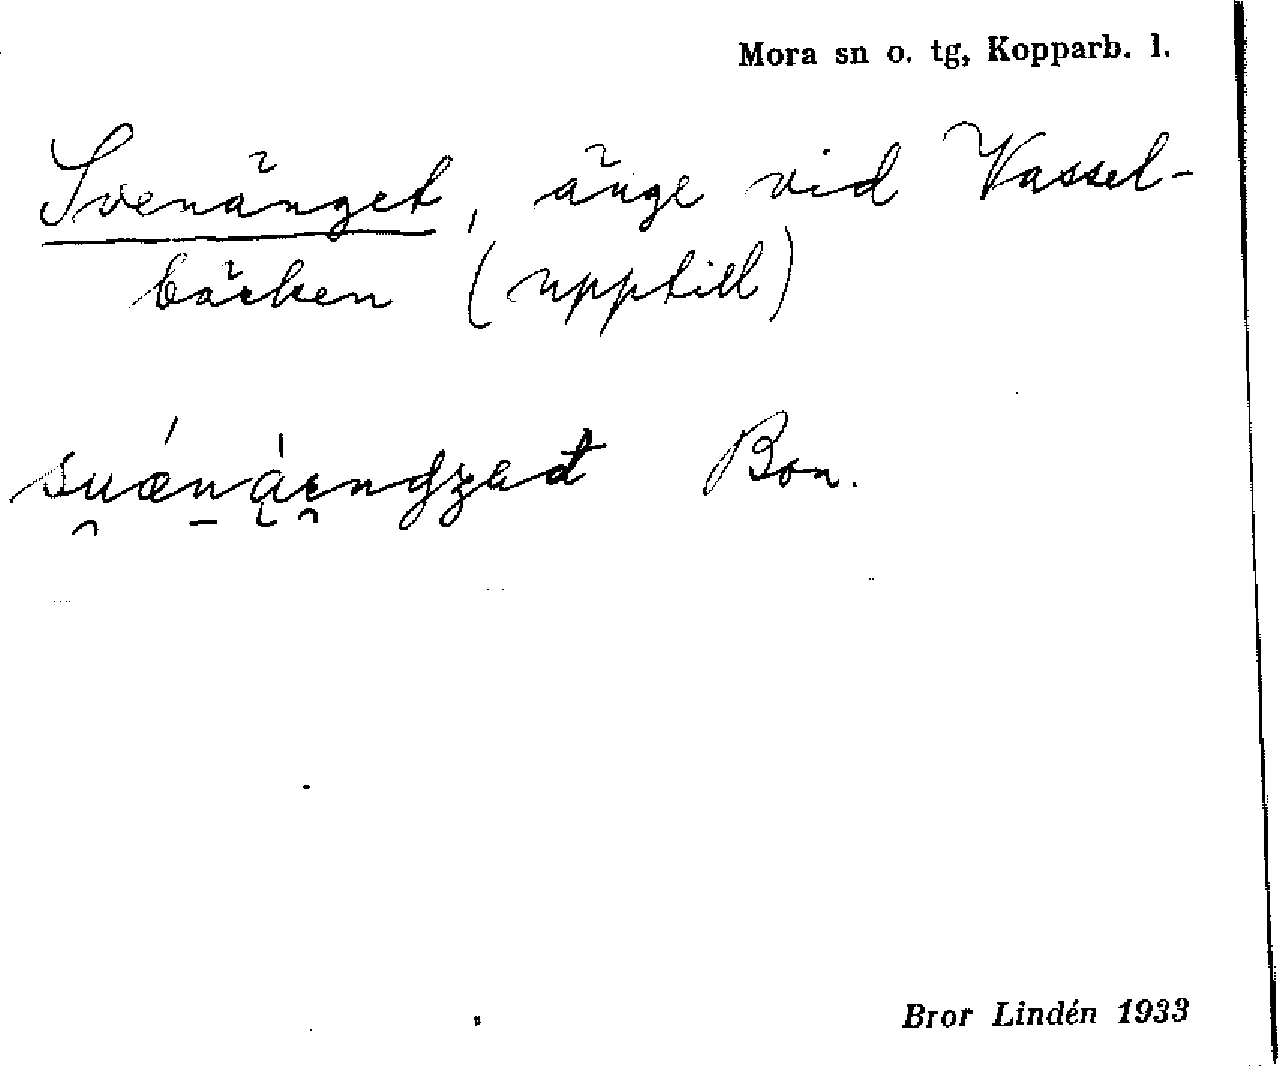 Mora sn o. tg, Kopparb. l.
Svenänget, änge vid Vassel-
bäcken (upptill)
Bon.
Bror Lindén 1933